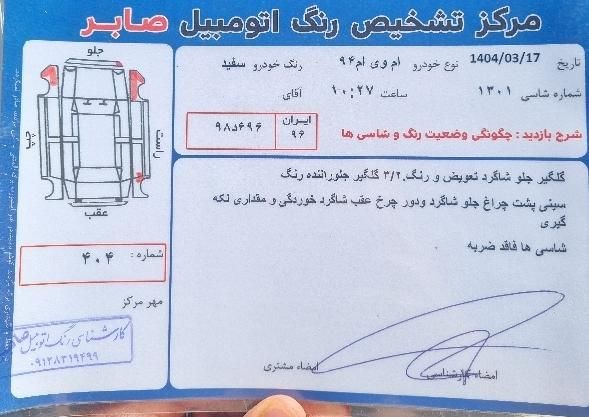 مرکز تشخیص رنگ اتومبیل صابر
تاریخ 1404/03/17 نوع خودرو ام وی ام ۹۴ رنگ خودرو سفید
شماره شاسی ۱۳۰۱ ساعت ۱۰:۲۷ آقای
شرح بازدید : چگونگی وضعیت رنگ و شاسی ها
ایران
۹۶
۹۸د۶۹۶
گلگیر جلو شاگرد تعویض و رنگ.۳/۲ گلگیر جلوراننده رنگ
سینی پشت چراغ جلو شاگرد ودور چرخ عقب شاگرد خوردگی و مقداری لکه
گیری
شاسی ها فاقد ضربه
جلو
راست
چپ
عقب
شماره : ۴۰۴
مهر مرکز
کارشناسی رنگ اتومبیل
۰۹۱۲۸۳۱۹۴۹۹
امضاء کارشناسی
امضاء مشتری